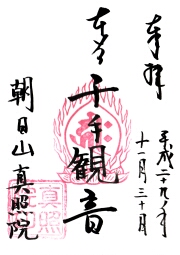 奉拝
平成二十九年
十一月三十日
本尊
千手観音
朝日山 真照院